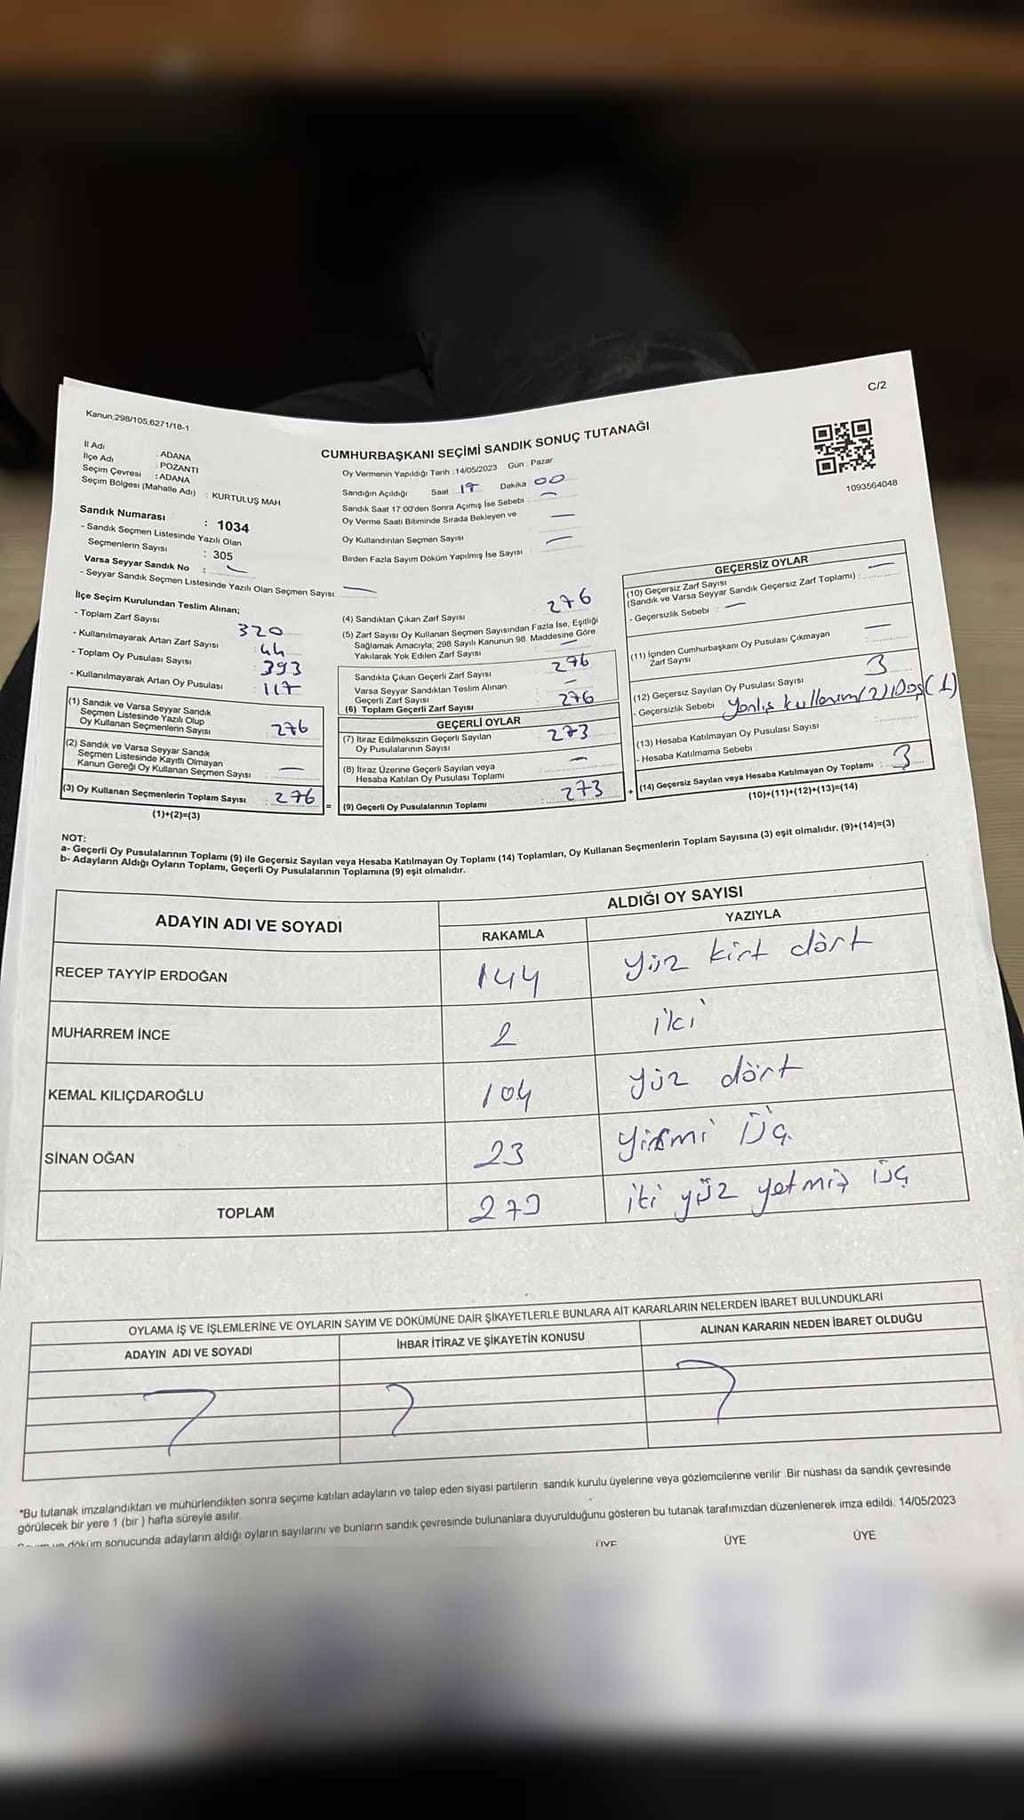 C/2
Kanun:298/105,6271/18-1
CUMHURBAŞKANI SEÇİMİ SANDIK SONUÇ TUTANAĞI
1093564048
İl Adı : ADANA
İlçe Adı : POZANTI
Seçim Çevresi : ADANA
Seçim Bölgesi (Mahalle Adı) : KURTULUŞ MAH
Sandık Numarası : 1034
- Sandık Seçmen Listesinde Yazılı Olan
Seçmenlerin Sayısı : 305
Varsa Seyyar Sandık No : —
- Seyyar Sandık Seçmen Listesinde Yazılı Olan Seçmen Sayısı: —
İlçe Seçim Kurulundan Teslim Alınan;
- Toplam Zarf Sayısı 320
- Kullanılmayarak Artan Zarf Sayısı : 44
- Toplam Oy Pusulası Sayısı : 393
- Kullanılmayarak Artan Oy Pusulası : 117
(1) Sandık ve Varsa Seyyar Sandık
Seçmen Listesinde Yazılı Olup
Oy Kullanan Seçmenlerin Sayısı : 276
(2) Sandık ve Varsa Seyyar Sandık
Seçmen Listesinde Kayıtlı Olmayan
Kanun Gereği Oy Kullanan Seçmen Sayısı : —
(3) Oy Kullanan Seçmenlerin Toplam Sayısı : 276
(1)+(2)=(3)
Oy Vermenin Yapıldığı Tarih : 14/05/2023 Gün : Pazar
Sandığın Açıldığı Saat 17 Dakika 00
Sandık Saat 17:00'den Sonra Açımış İse Sebebi : —
Oy Verme Saati Bitiminde Sırada Bekleyen ve
Oy Kullandırılan Seçmen Sayısı —
Birden Fazla Sayım Döküm Yapılmış İse Sayısı —
(4) Sandıktan Çıkan Zarf Sayısı 276
(5) Zarf Sayısı Oy Kullanan Seçmen Sayısından Fazla İse, Eşitliği
Sağlamak Amacıyla; 298 Sayılı Kanunun 98. Maddesine Göre
Yakılarak Yok Edilen Zarf Sayısı —
Sandıkta Çıkan Geçerli Zarf Sayısı 276
Varsa Seyyar Sandıktan Teslim Alınan
Geçerli Zarf Sayısı —
(6) Toplam Geçerli Zarf Sayısı 276
GEÇERLİ OYLAR
(7) İtiraz Edilmeksizin Geçerli Sayılan
Oy Pusulalarının Sayısı : 273
(8) İtiraz Üzerine Geçerli Sayılan veya
Hesaba Katılan Oy Pusulası Toplamı : —
= (9) Geçerli Oy Pusulalarının Toplamı : 273
GEÇERSİZ OYLAR
(10) Geçersiz Zarf Sayısı
(Sandık ve Varsa Seyyar Sandık Geçersiz Zarf Toplamı) : —
- Geçersizlik Sebebi : —
(11) İçinden Cumhurbaşkanı Oy Pusulası Çıkmayan
Zarf Sayısı : —
(12) Geçersiz Sayılan Oy Pusulası Sayısı 3
- Geçersizlik Sebebi Yanlış kullanım(2) Doş(1)
(13) Hesaba Katılmayan Oy Pusulası Sayısı :
- Hesaba Katılmama Sebebi
+ (14) Geçersiz Sayılan veya Hesaba Katılmayan Oy Toplamı : 3
(10)+(11)+(12)+(13)=(14)
NOT:
a- Geçerli Oy Pusulalarının Toplamı (9) ile Geçersiz Sayılan veya Hesaba Katılmayan Oy Toplamı (14) Toplamları, Oy Kullanan Seçmenlerin Toplam Sayısına (3) eşit olmalıdır. (9)+(14)=(3)
b- Adayların Aldığı Oyların Toplamı, Geçerli Oy Pusulalarının Toplamına (9) eşit olmalıdır.
ADAYIN ADI VE SOYADI ALDIĞI OY SAYISI
RAKAMLA YAZIYLA
RECEP TAYYİP ERDOĞAN 144 yüz kırk dört
MUHARREM İNCE 2 iki
KEMAL KILIÇDAROĞLU 104 yüz dört
SİNAN OĞAN 23 yirmi üç
TOPLAM 273 iki yüz yetmiş üç
OYLAMA İŞ VE İŞLEMLERİNE VE OYLARIN SAYIM VE DÖKÜMÜNE DAİR ŞİKAYETLERLE BUNLARA AİT KARARLARIN NELERDEN İBARET BULUNDUKLARI
ADAYIN ADI VE SOYADI İHBAR İTİRAZ VE ŞİKAYETİN KONUSU ALINAN KARARIN NEDEN İBARET OLDUĞU
*Bu tutanak imzalandıktan ve mühürlendikten sonra seçime katılan adayların ve talep eden siyasi partilerin sandık kurulu üyelerine veya gözlemcilerine verilir. Bir nüshası da sandık çevresinde
görülecek bir yere 1 (bir) hafta süreyle asılır.
döküm sonucunda adayların aldığı oyların sayılarını ve bunların sandık çevresinde bulunanlara duyurulduğunu gösteren bu tutanak tarafımızdan düzenlenerek imza edildi. 14/05/2023
ÜYE ÜYE ÜYE